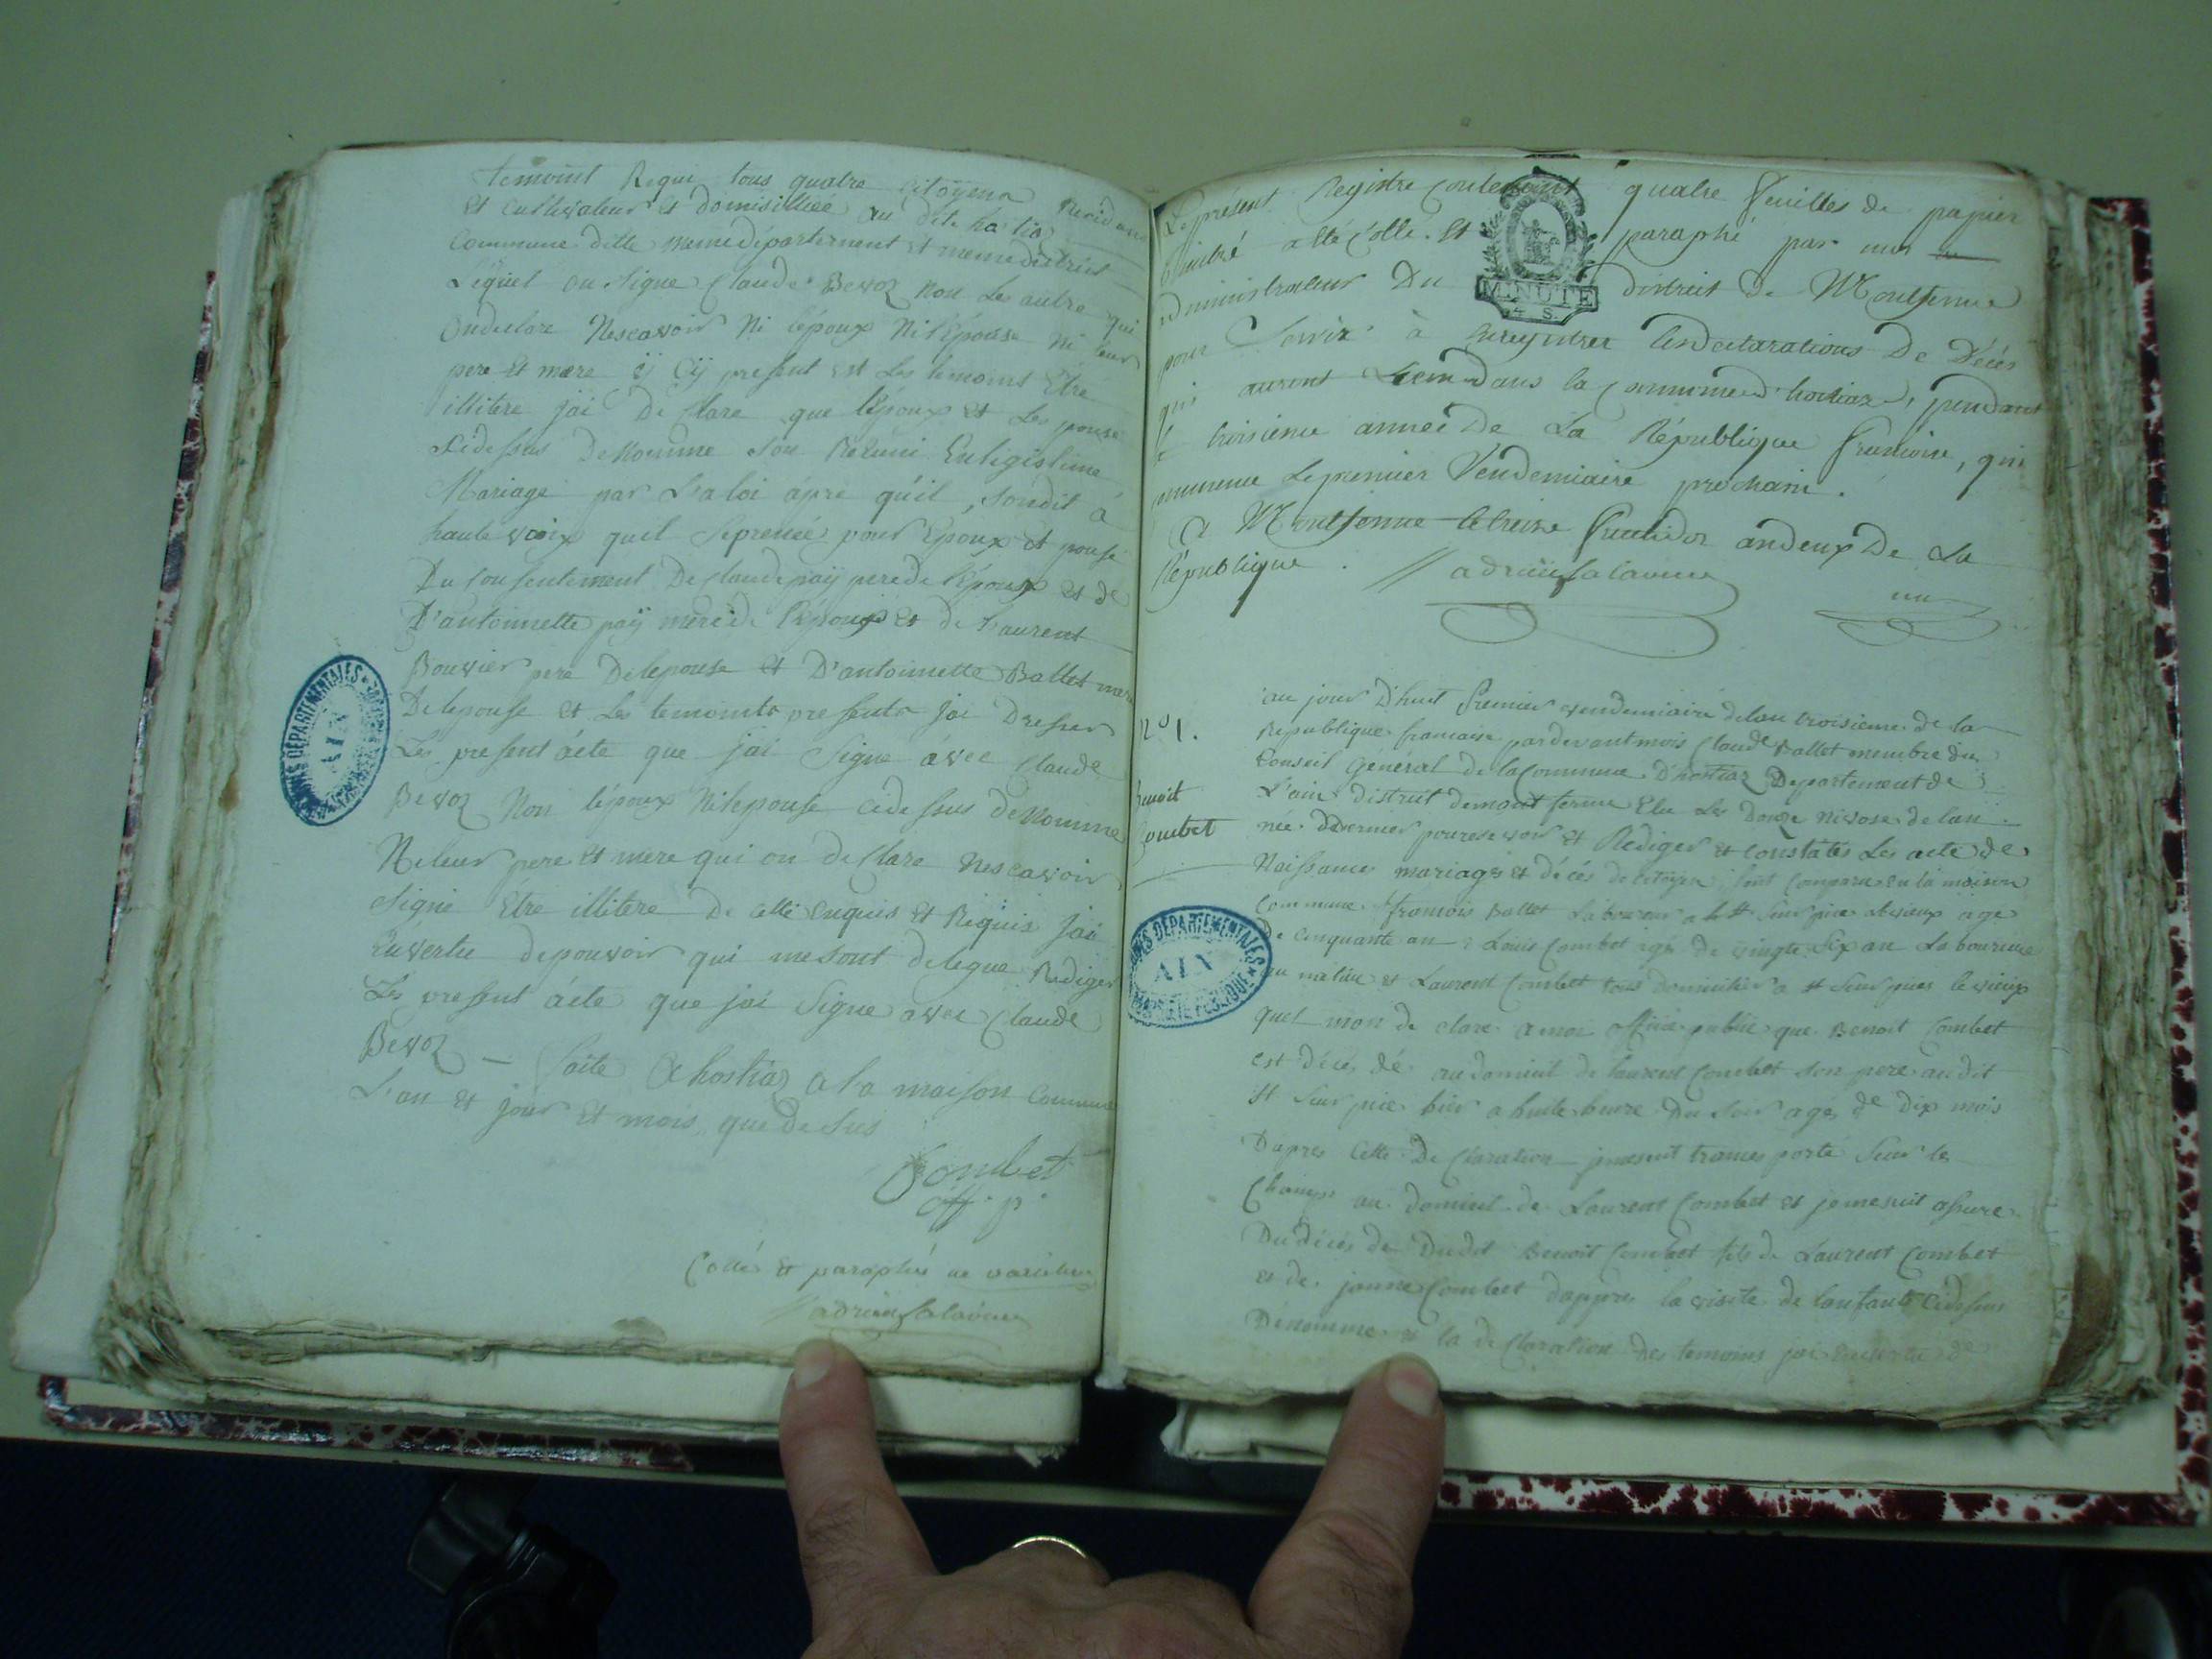 temoint Requi tous quatre citoÿena Residans
Et cultivateur et domisilliee au dite hostia
Commune ditte meme département et meme district
Lequel on signe Claude Bevoz Non Les autre qui
On declare Nescavoir Ni l'époux Ni l'épouse Ni leur
pere Et mere cy present est Les temoins Etre
illitere jai De clare que l'époux et Les pouse
cidessus Denomme son Reuni En legistime
Mariage par La loi apre qu'il son dit à
haute voix quil se prenée pour Epoux et pouse
Du consentement De claude paÿ pere de l'époux et de
D'antoinette paÿ mere de l'époux et de Laurent
Bouvier pere De lepouse et D'antoinette Ballet mere
De lepouse et Les temoints presents jai Dresser
Les present ácte que jai Signe ávec Claude
Bevoz Non l'époux Ni lepouse cide ssus deNomme
Ni leur pere et mere qui on declare Nescavoir
signe Etre illitere De cette enquis et Requis jai
En vertu depouvoir qui me sont delegue Rediger
Les present ácte que jai Signe avec Claude
Bevoz — faite A hostiaz a la maison Commune
L'an et jour et mois que de sus
Combet
off. p.
Cotté et paraphé ne varietur
adrien Salavin
Le présent Registre contenant quatre feuilles de papier
timbré a été Cotté et paraphé par moi
administrateur Du district De Montferme
MINUTE
4 S.
pour Servir à Enregistrer Les declarations De Décés
qui auront Lieu dans la Commune d'hostiaz, pendant
la troisieme année De La République francoise, qui
commence Le premier Vendemiaire prochain.
A Montferme le treize fructidor an deux De La
République.
adrien Salavin
un
N° 1.
Benoit
Combet
au jour D'huit Premier vendemiaire de lan troisieme de la
Republique francaise pardevant mois Claude Ballet membre du
Conseil Général de la Commune D'hostiaz Departement de
L'ain district demont ferme Elu Les Douze Nivose de lan
dernier pour recevoir et Rediger et constates Les acte de
Naissance mariages et décés de citoyen, sont comparu en la maison
Commune francois Ballet Laboureur a St Surpice le vieux age
de cinquante an & Louis Combet age de vingte six an Laboureur
et Laurent Combet tous domicilier a St Surpice le vieux
quel mon de clare a moi officie public que Benoit Combet
est décé dé au domicil de laurent Combet son pere au dit
St Surpice hier a huite heure Du soir age de dix mois
Dapres Cette De Claration je me suit trans porté Sur le
Champs au domicil de Laurent Combet et je me suit assure
Du décés de Dudit Benoit Combet fils de Laurent Combet
et de janne Combet dappres la visite de l'enfant Cidessus
Dénomme et la de Claration des temoins jai En vertu de
ARCHIVES DÉPARTEMENTALES
AIN
PROPRIÉTÉ PUBLIQUE